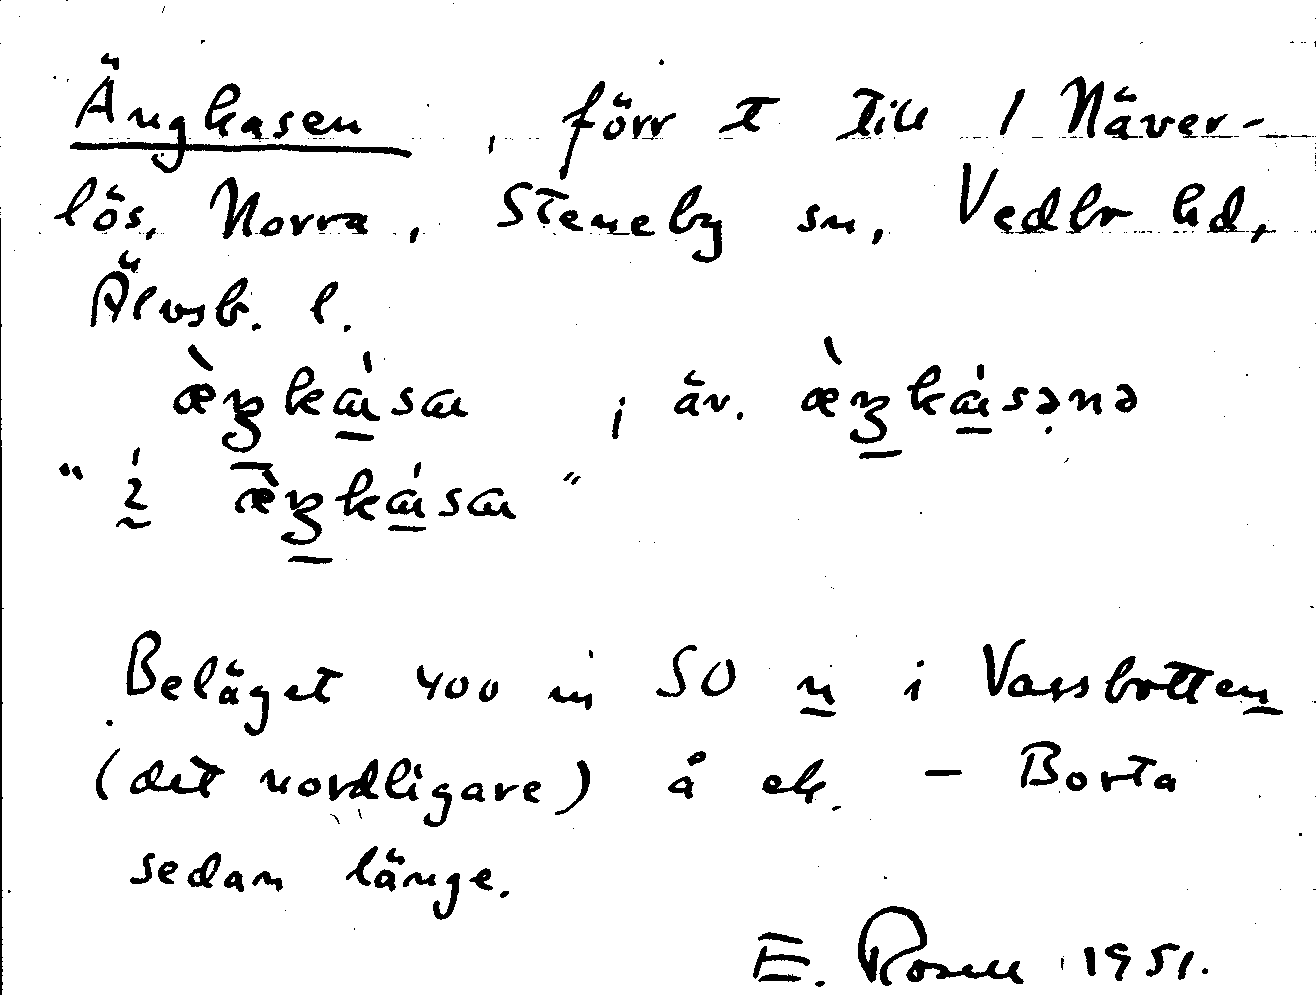 Ängkasen, förr t till 1 Näver-
lös, Norra, Steneby sn, Vedbo hd,
Älvsb. l.
æ̀ŋkása ; äv. æ̀ŋkásənə
"i æ̀ŋkása"
Beläget 400 m SO n i Vassbotten
(det nordligare) å ek. – Borta
sedan länge.
E. Rosell 1951.